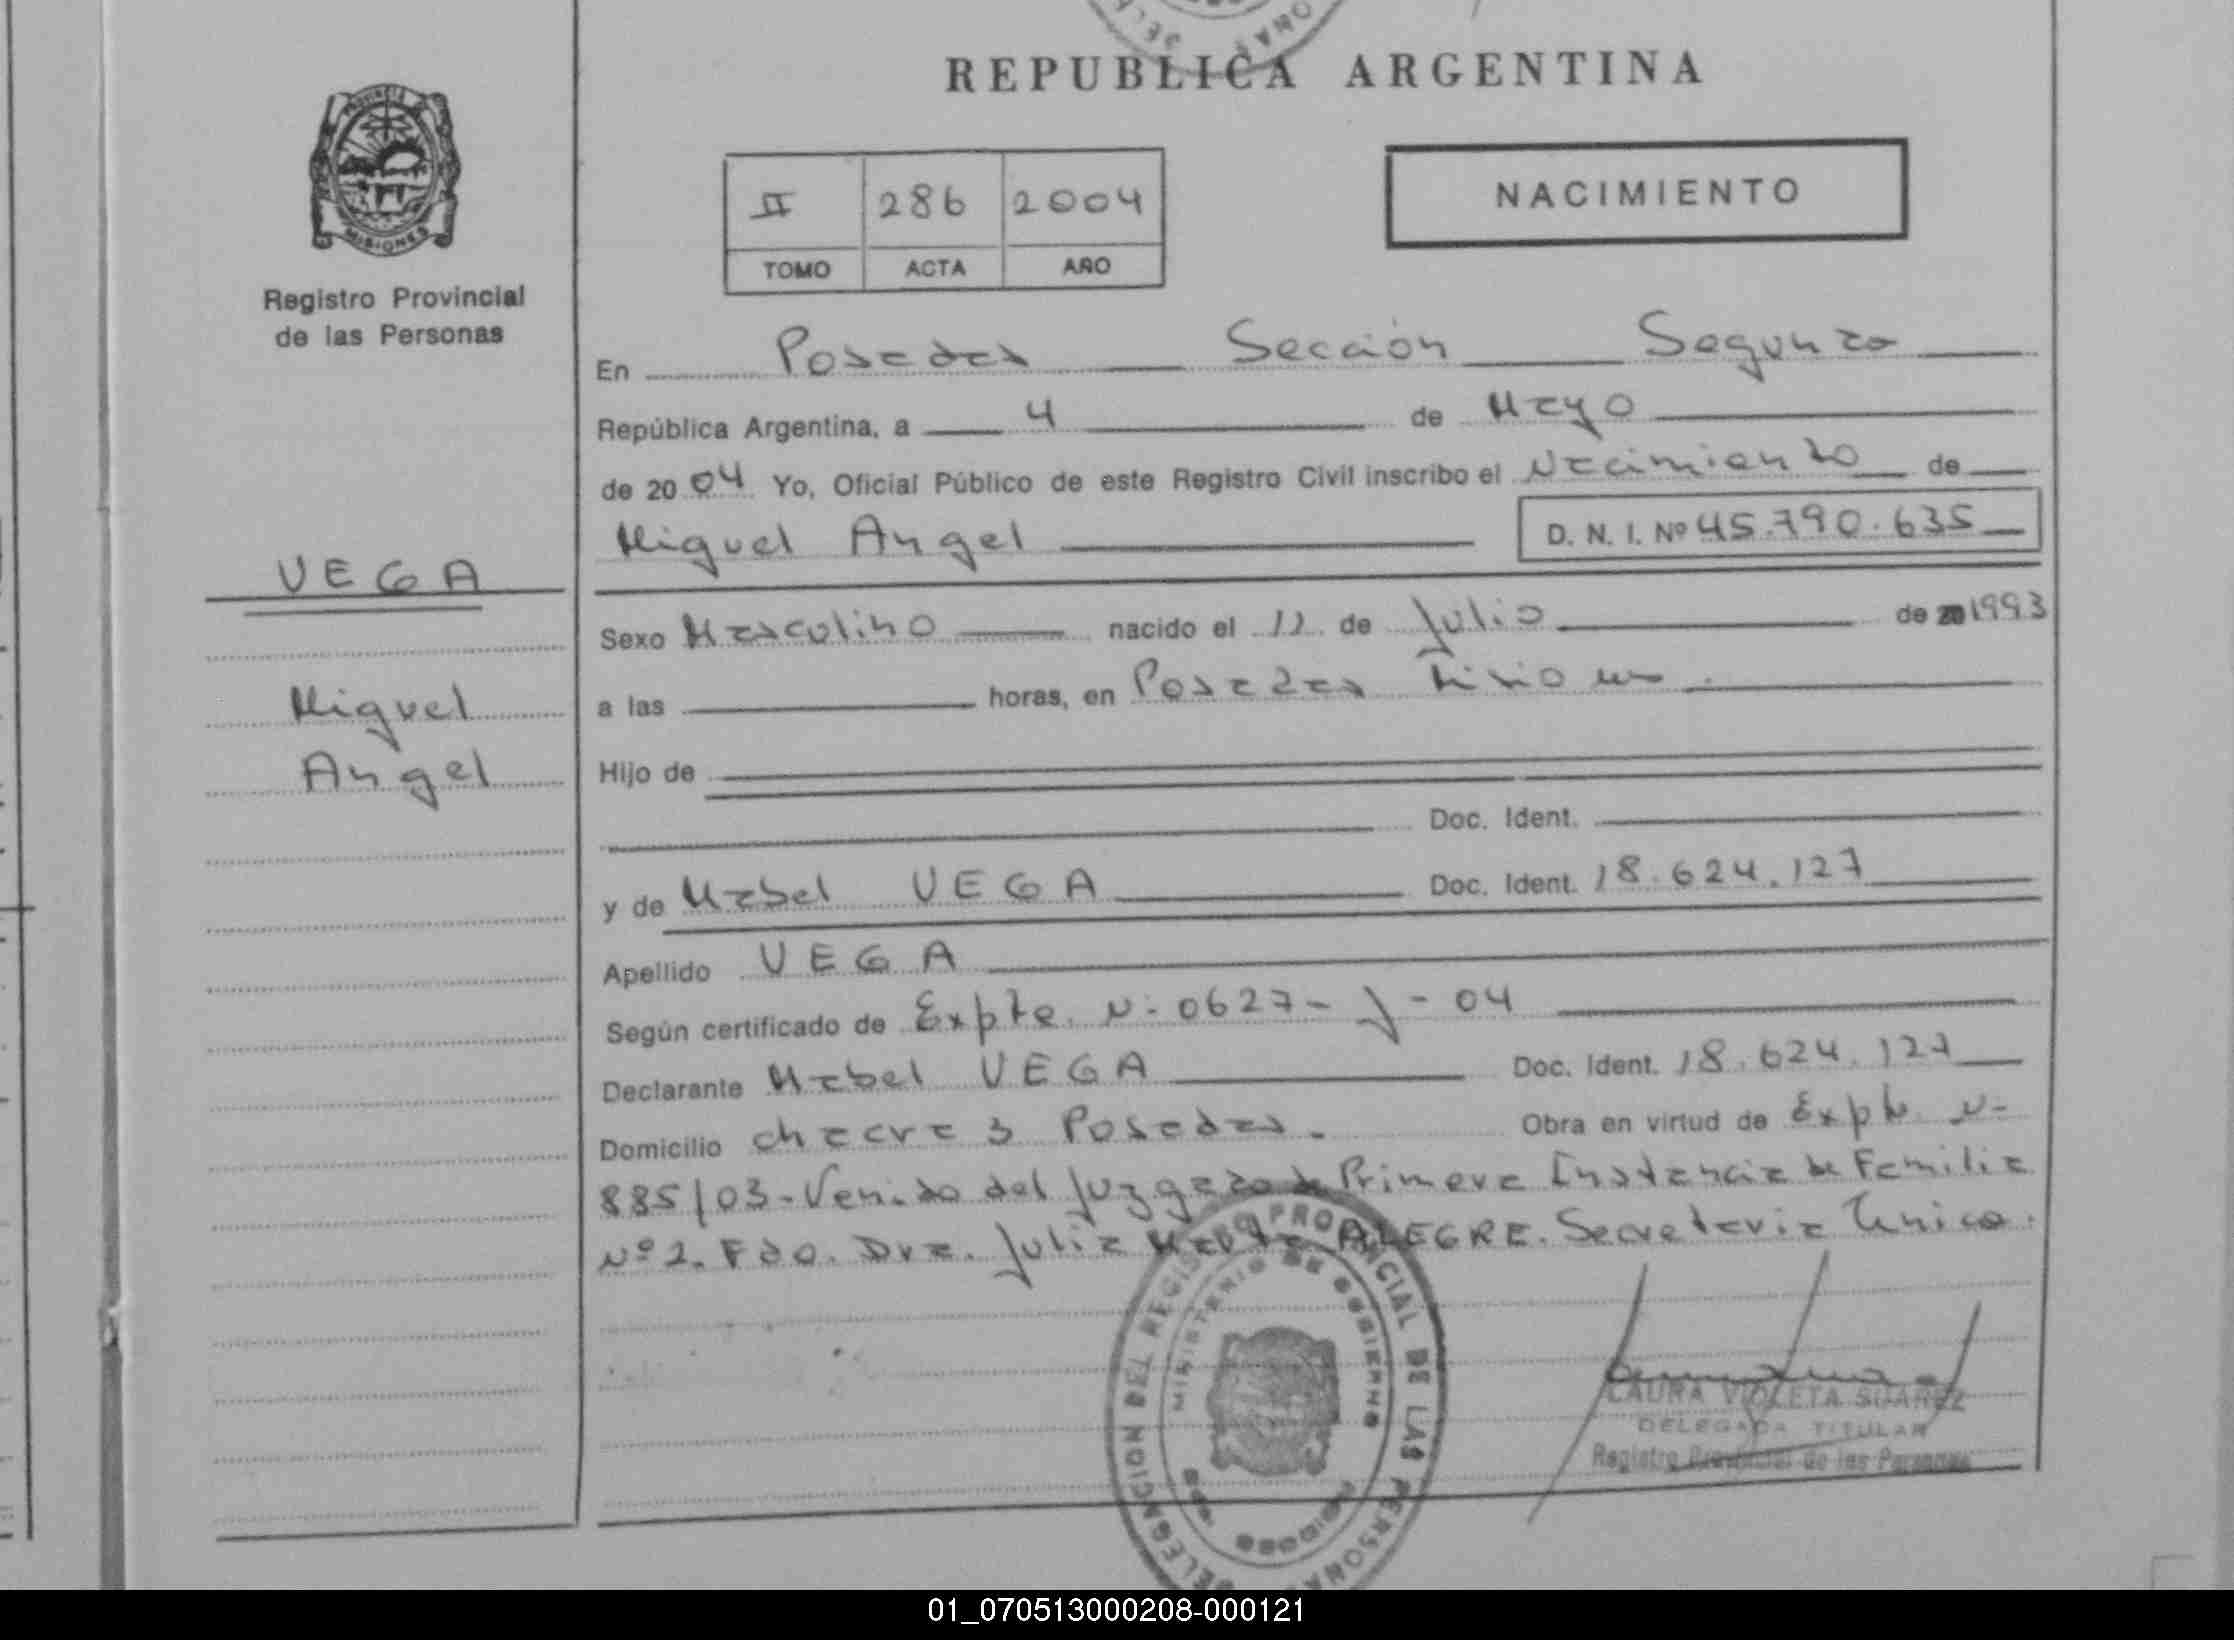 REPUBLICA ARGENTINA
PROVINCIA DE
MISIONES
Registro Provincial
de las Personas
II 286 2004
TOMO ACTA AÑO
NACIMIENTO
En Posadas Sección Segunda
República Argentina, a 4 de Mayo
de 2004 Yo, Oficial Público de este Registro Civil inscribo el Nacimiento de
Miguel Angel D. N. I. Nº 45.790.635
VEGA
Miguel
Angel
Sexo Masculino nacido el 12 de Julio de 1993
a las horas, en Posadas Misiones.
Hijo de
Doc. Ident.
y de Mabel VEGA Doc. Ident. 18.624.127
Apellido VEGA
Según certificado de Expte. N: 0627-J-04
Declarante Mabel VEGA Doc. Ident. 18.624.127
Domicilio chacra 3 Posadas. Obra en virtud de Expte N-
885/03-Venido del Juzgado de Primera Instancia de Familia
Nº 2. Fdo. Dra. Julia ALEGRE. Secretaria Unica.
DELEGACION DEL REGISTRO PROVINCIAL DE LAS PERSONAS
MINISTERIO DE GOBIERNO
LAURA VIOLETA SUAREZ
DELEGADA TITULAR
Registro Provincial de las Personas
01_070513000208-000121